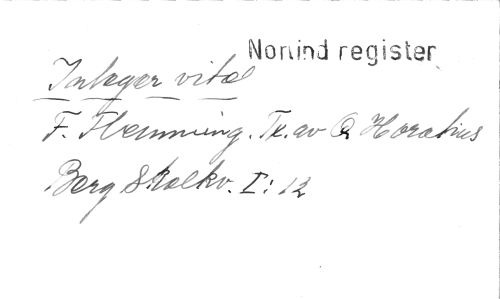 Nonind register
Integer vitae
F. Flemming. Tx. av Q Horatius
Berg Skolkv. I: 12